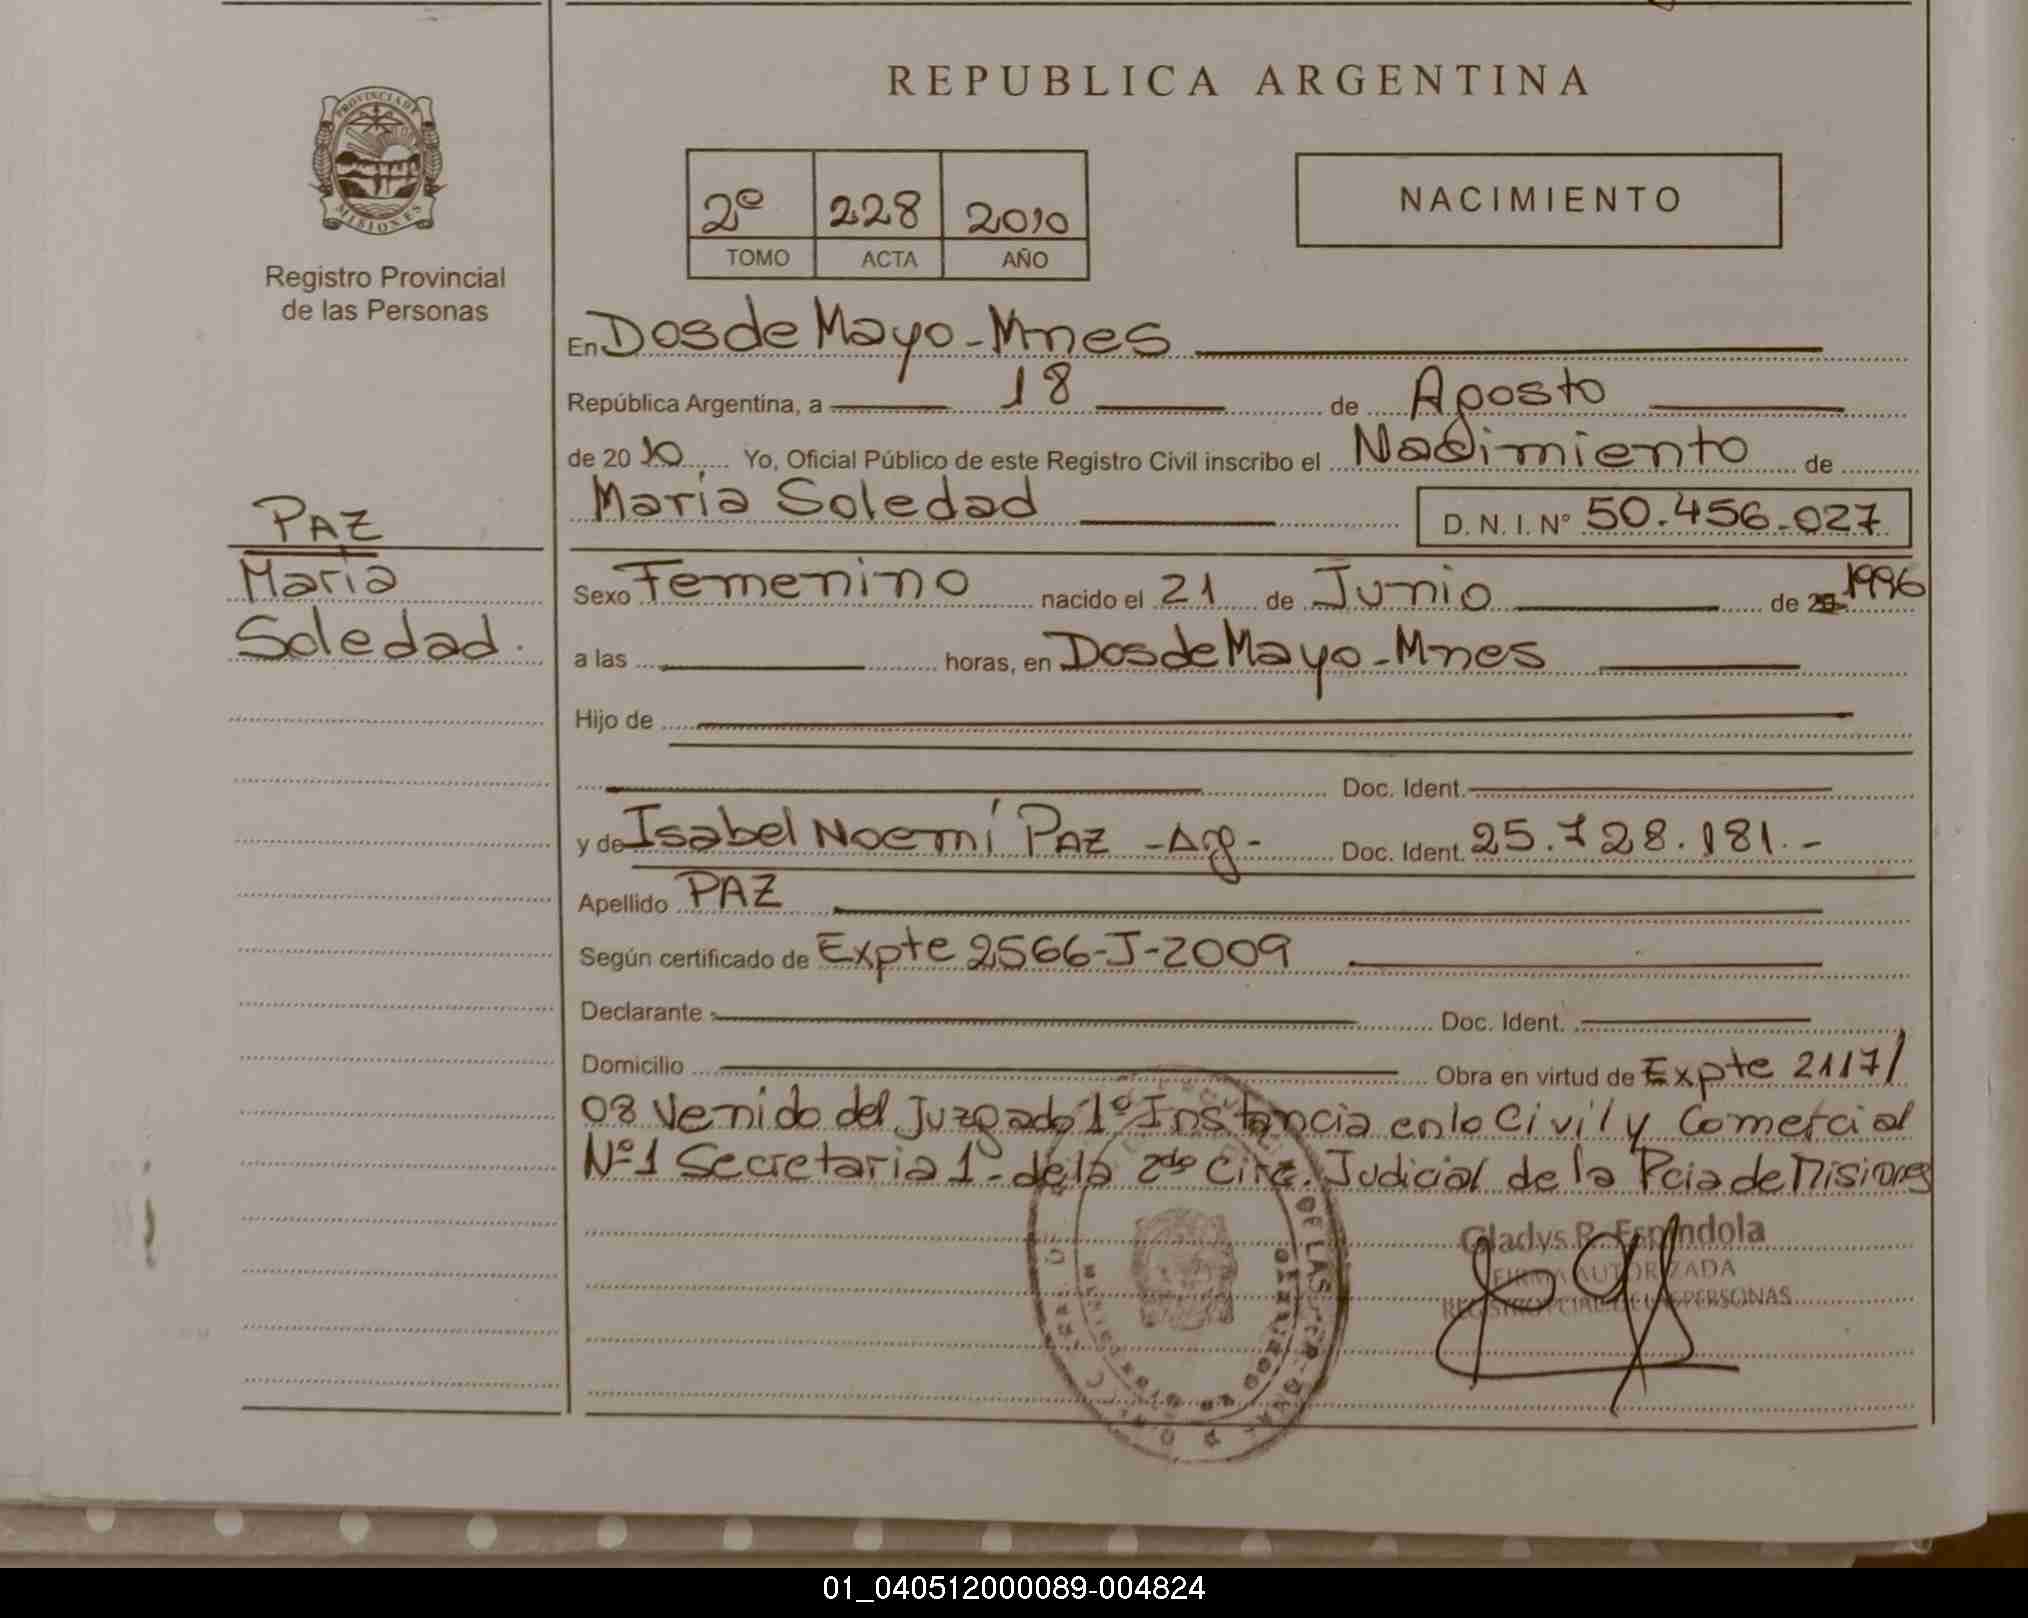 REPUBLICA ARGENTINA
PROVINCIA DE
MISIONES
Registro Provincial
de las Personas
2º 228 2010
TOMO ACTA AÑO
NACIMIENTO
En Dos de Mayo - Mnes
República Argentina, a 18 de Agosto
de 20 10 Yo, Oficial Público de este Registro Civil inscribo el Nacimiento de
María Soledad D. N. I. Nº 50.456.027
PAZ
María
Soledad.
Sexo Femenino nacido el 21 de Junio de 1996
a las horas, en Dos de Mayo - Mnes
Hijo de
Doc. Ident.
y de Isabel Noemí PAZ - Arg - Doc. Ident. 25.728.181.-
Apellido PAZ
Según certificado de Expte 2566-J-2009
Declarante Doc. Ident.
Domicilio Obra en virtud de Expte 2117/
08 Venido del Juzgado 1º Instancia en lo Civil y Comercial
Nº1 Secretaria 1- de la 2da Circ. Judicial de la Pcia de Misiones
Gladys R. Espindola
FIRMA AUTORIZADA
REGISTRO PCIAL DE LAS PERSONAS
01_040512000089-004824